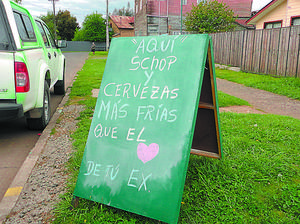 AQUÍ
SCHOP
Y
CERVEZAS
MÁS FRÍAS
QUE EL
DE TÚ EX